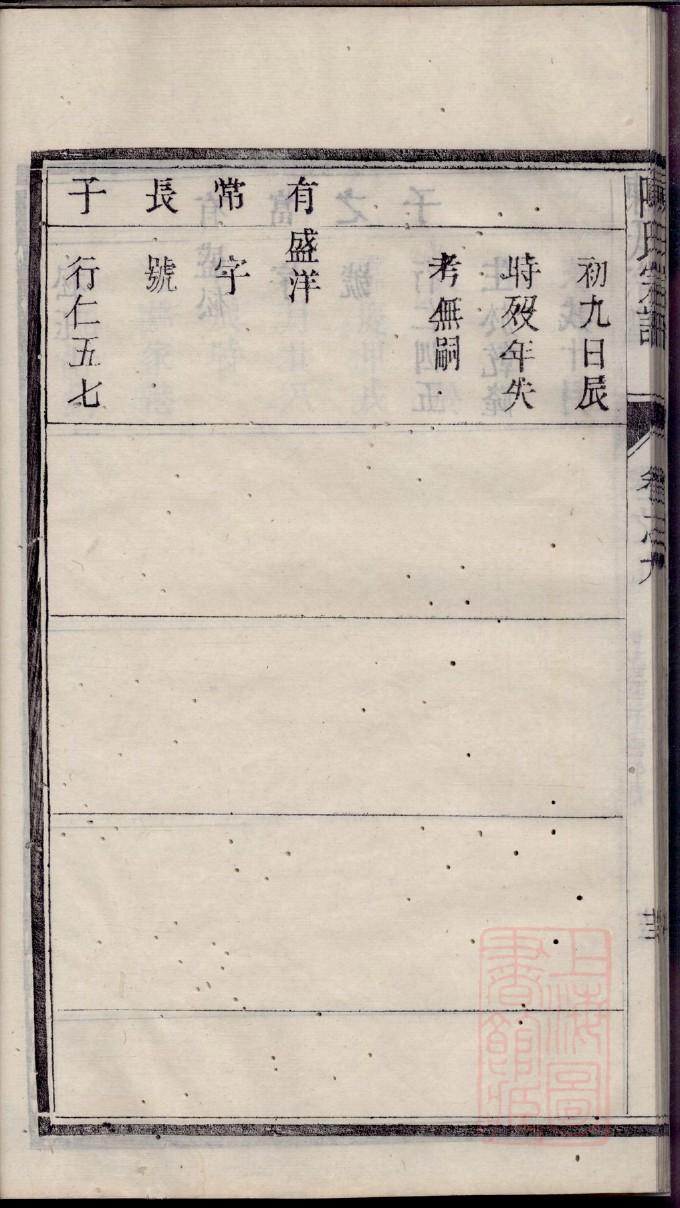 初九日辰
時歿年失
考無嗣
有盛洋
常字
長號
子行仁五七
氏宗譜
卷之九
上海圖
書館藏